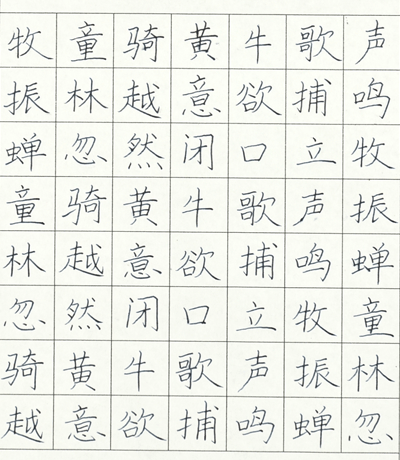 牧童骑黄牛歌声
振林越意欲捕鸣
蝉忽然闭口立牧
童骑黄牛歌声振
林越意欲捕鸣蝉
忽然闭口立牧童
骑黄牛歌声振林
越意欲捕鸣蝉忽